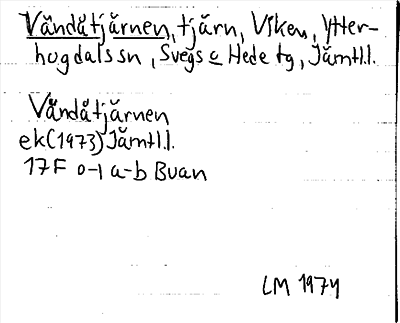 Våndåtjärnen, tjärn, Viken, Ytter-
hogdals sn, Svegs o Hede tg, Jämtl.l.
Våndåtjärnen
ek(1973) Jämtl.l.
17F 0-1 a-b Buan
LM 1974